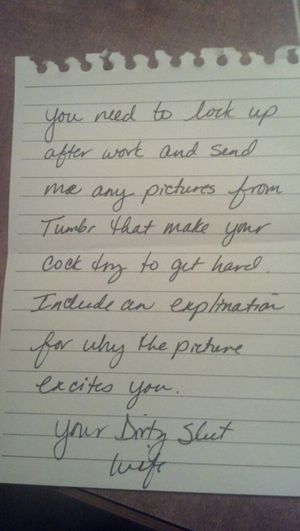 you need to lock up
after work and send
me any pictures from
Tumbr that make your
cock try to get hard.
Include an explination
for why the picture
excites you.
your Dirty Slut
wife